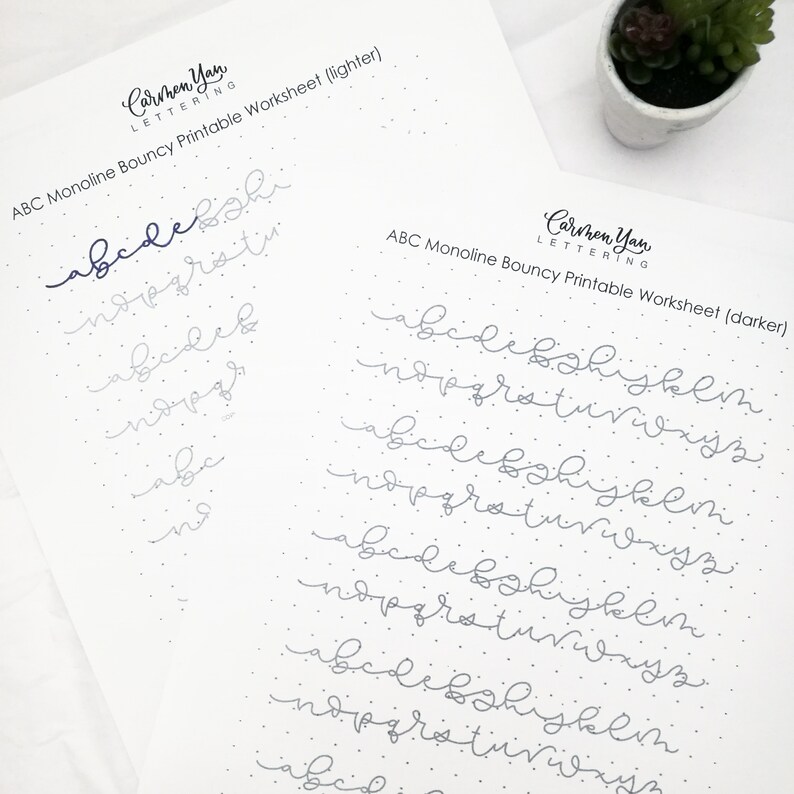 Carmen Yan
LETTERING
ABC Monoline Bouncy Printable Worksheet (lighter)
abcdefghi
nopqrstu
abcdef
nopqr
abc
no
Carmen Yan
LETTERING
ABC Monoline Bouncy Printable Worksheet (darker)
abcdefghijklm
nopqrstuvwxyz
abcdefghijklm
nopqrstuvwxyz
abcdefghijklm
nopqrstuvwxyz
abcdefghijklm
nopqrstuvwxyz
abcdef